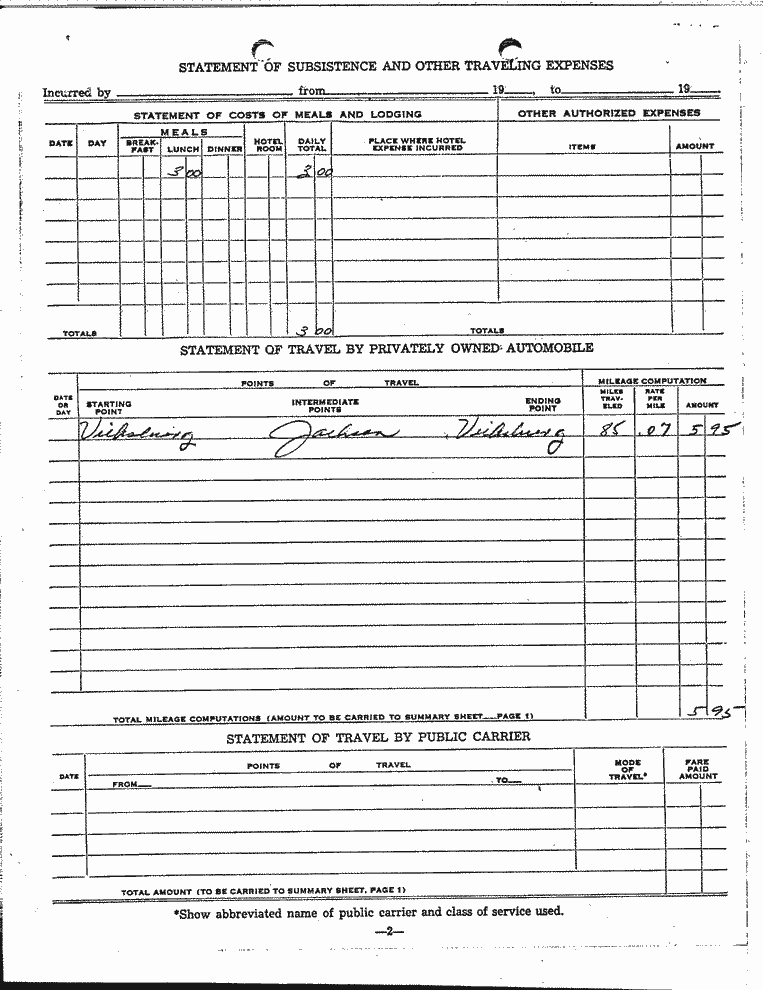 STATEMENT OF SUBSISTENCE AND OTHER TRAVELING EXPENSES
Incurred by from 19 , to 19
STATEMENT OF COSTS OF MEALS AND LODGING OTHER AUTHORIZED EXPENSES
DATE DAY MEALS HOTEL ROOM DAILY TOTAL PLACE WHERE HOTEL EXPENSE INCURRED ITEMS AMOUNT
BREAK-FAST LUNCH DINNER
3 00 3 00
TOTALS 3 00 TOTALS
STATEMENT OF TRAVEL BY PRIVATELY OWNED AUTOMOBILE
POINTS OF TRAVEL MILEAGE COMPUTATION
DATE OR DAY STARTING POINT INTERMEDIATE POINTS ENDING POINT MILES TRAV-ELED RATE PER MILE AMOUNT
Vicksburg Jackson Vicksburg 85 .07 5 95
TOTAL MILEAGE COMPUTATIONS (AMOUNT TO BE CARRIED TO SUMMARY SHEET PAGE 1) 5 95
STATEMENT OF TRAVEL BY PUBLIC CARRIER
DATE POINTS OF TRAVEL MODE OF TRAVEL* FARE PAID AMOUNT
FROM TO
TOTAL AMOUNT (TO BE CARRIED TO SUMMARY SHEET, PAGE 1)
*Show abbreviated name of public carrier and class of service used.
—2—